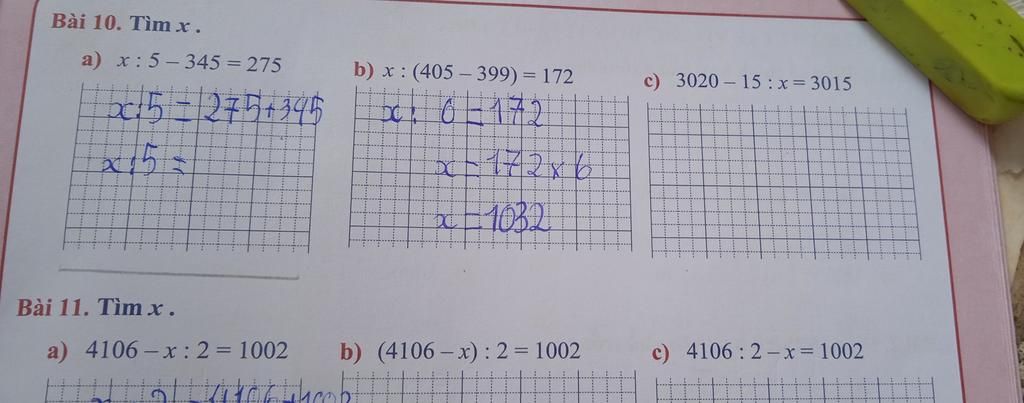 Bài 10. Tìm x.
a) x : 5 – 345 = 275
x:5 = 275+345
x:5 =
b) x : (405 – 399) = 172
x: 6 = 172
x = 172 x 6
x = 1032
c) 3020 – 15 : x = 3015
Bài 11. Tìm x.
a) 4106 – x : 2 = 1002
b) (4106 – x) : 2 = 1002
c) 4106 : 2 – x = 1002